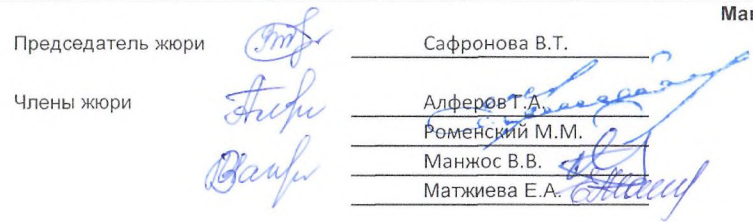 Ма
Председатель жюри Сафронова В.Т.
Члены жюри Алферов Г.А.
Роменский М.М.
Манжос В.В.
Матжиева Е.А.